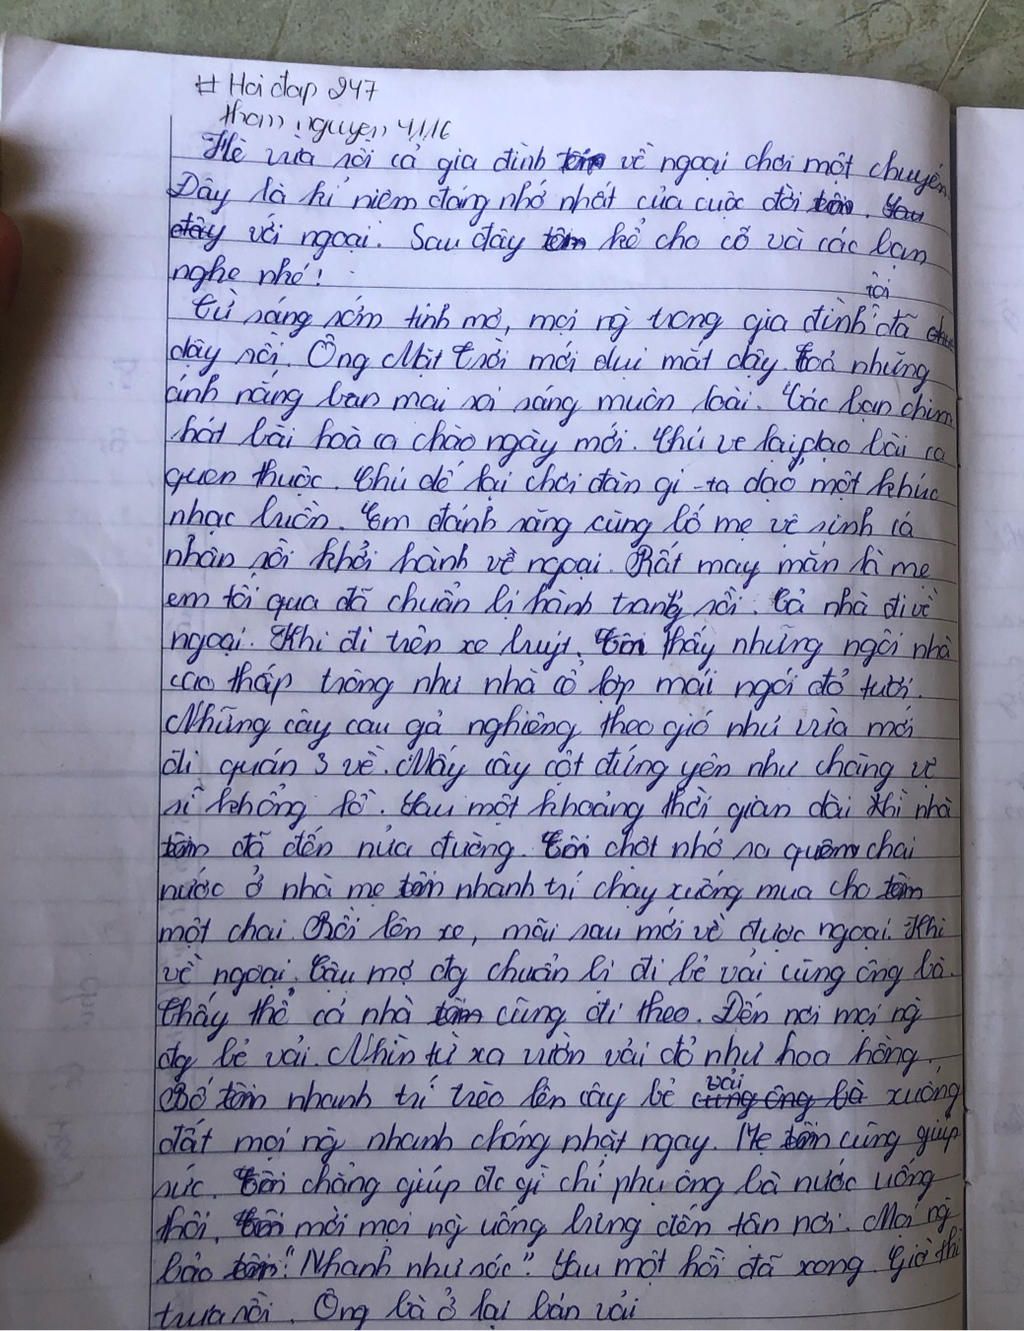 # Hoi đap 247
tham nguyen 4116
Hè vừa rồi cả gia đình tôi về ngoại chơi một chuyến
Đây là kỉ niệm đáng nhớ nhất của cuộc đời tôi. Sau
đây với ngoại. Sau đây tôi kể cho cô và các bạn
nghe nhé!
tôi
Từ sáng sớm tinh mơ, mọi ng̀ trong gia đình đã
dậy rồi. Ông Mặt Trời mới dụi mắt dậy toả những
ánh nắng ban mai soi sáng muôn loài. Các bạn chim
hát bài hoà ca chào ngày mới. Chú ve lại dạo bài ca
quen thuộc. Chú dế lại chơi đàn gi-ta dạo một khúc
nhạc buồn. Em đánh răng cùng bố mẹ vệ sinh cá
nhân rồi khởi hành về ngoại. Rất may mắn là mẹ
em tối qua đã chuẩn bị hành trang rồi. Cả nhà đi về
ngoại. Khi đi trên xe buýt. Tôi thấy những ngôi nhà
cao thấp trông như nhà cổ lợp mái ngói đỏ tươi.
Những cây cau gả nghiêng theo gió như vừa mới
đi quán 3 về. Mấy cây cột đứng yên như chàng vệ
sĩ khổng lồ. Sau một khoảng thời gian dài thì nhà
tôi đã đến nửa đường. Tôi chợt nhớ ra quên chai
nước ở nhà mẹ tôi nhanh trí chạy xuống mua cho tôi
một chai. Rồi lên xe, mãi sau mới về được ngoại. Khi
về ngoại. Cậu mợ đg chuẩn bị đi bẻ vải cùng ông bà.
Thấy thế cả nhà tôi cũng đi theo. Đến nơi mọi ng̀
đg bẻ vải. Nhìn từ xa vườn vải đỏ như hoa hồng.
Bố tôi nhanh trí trèo lên cây bẻ vải cùng ông bà xuống
đất mọi ng̀ nhanh chóng nhặt ngay. Mẹ tôi cũng giúp
sức. Tôi chẳng giúp đc gì chỉ phụ ông bà nước uống
thôi. Tôi mời mọi ng̀ uống bưng đến tận nơi. Mọi ng̀
bảo tôi: "Nhanh như sóc". Sau một hồi đã xong. Giờ thì
trưa rồi. Ông bà ở lại bán vải